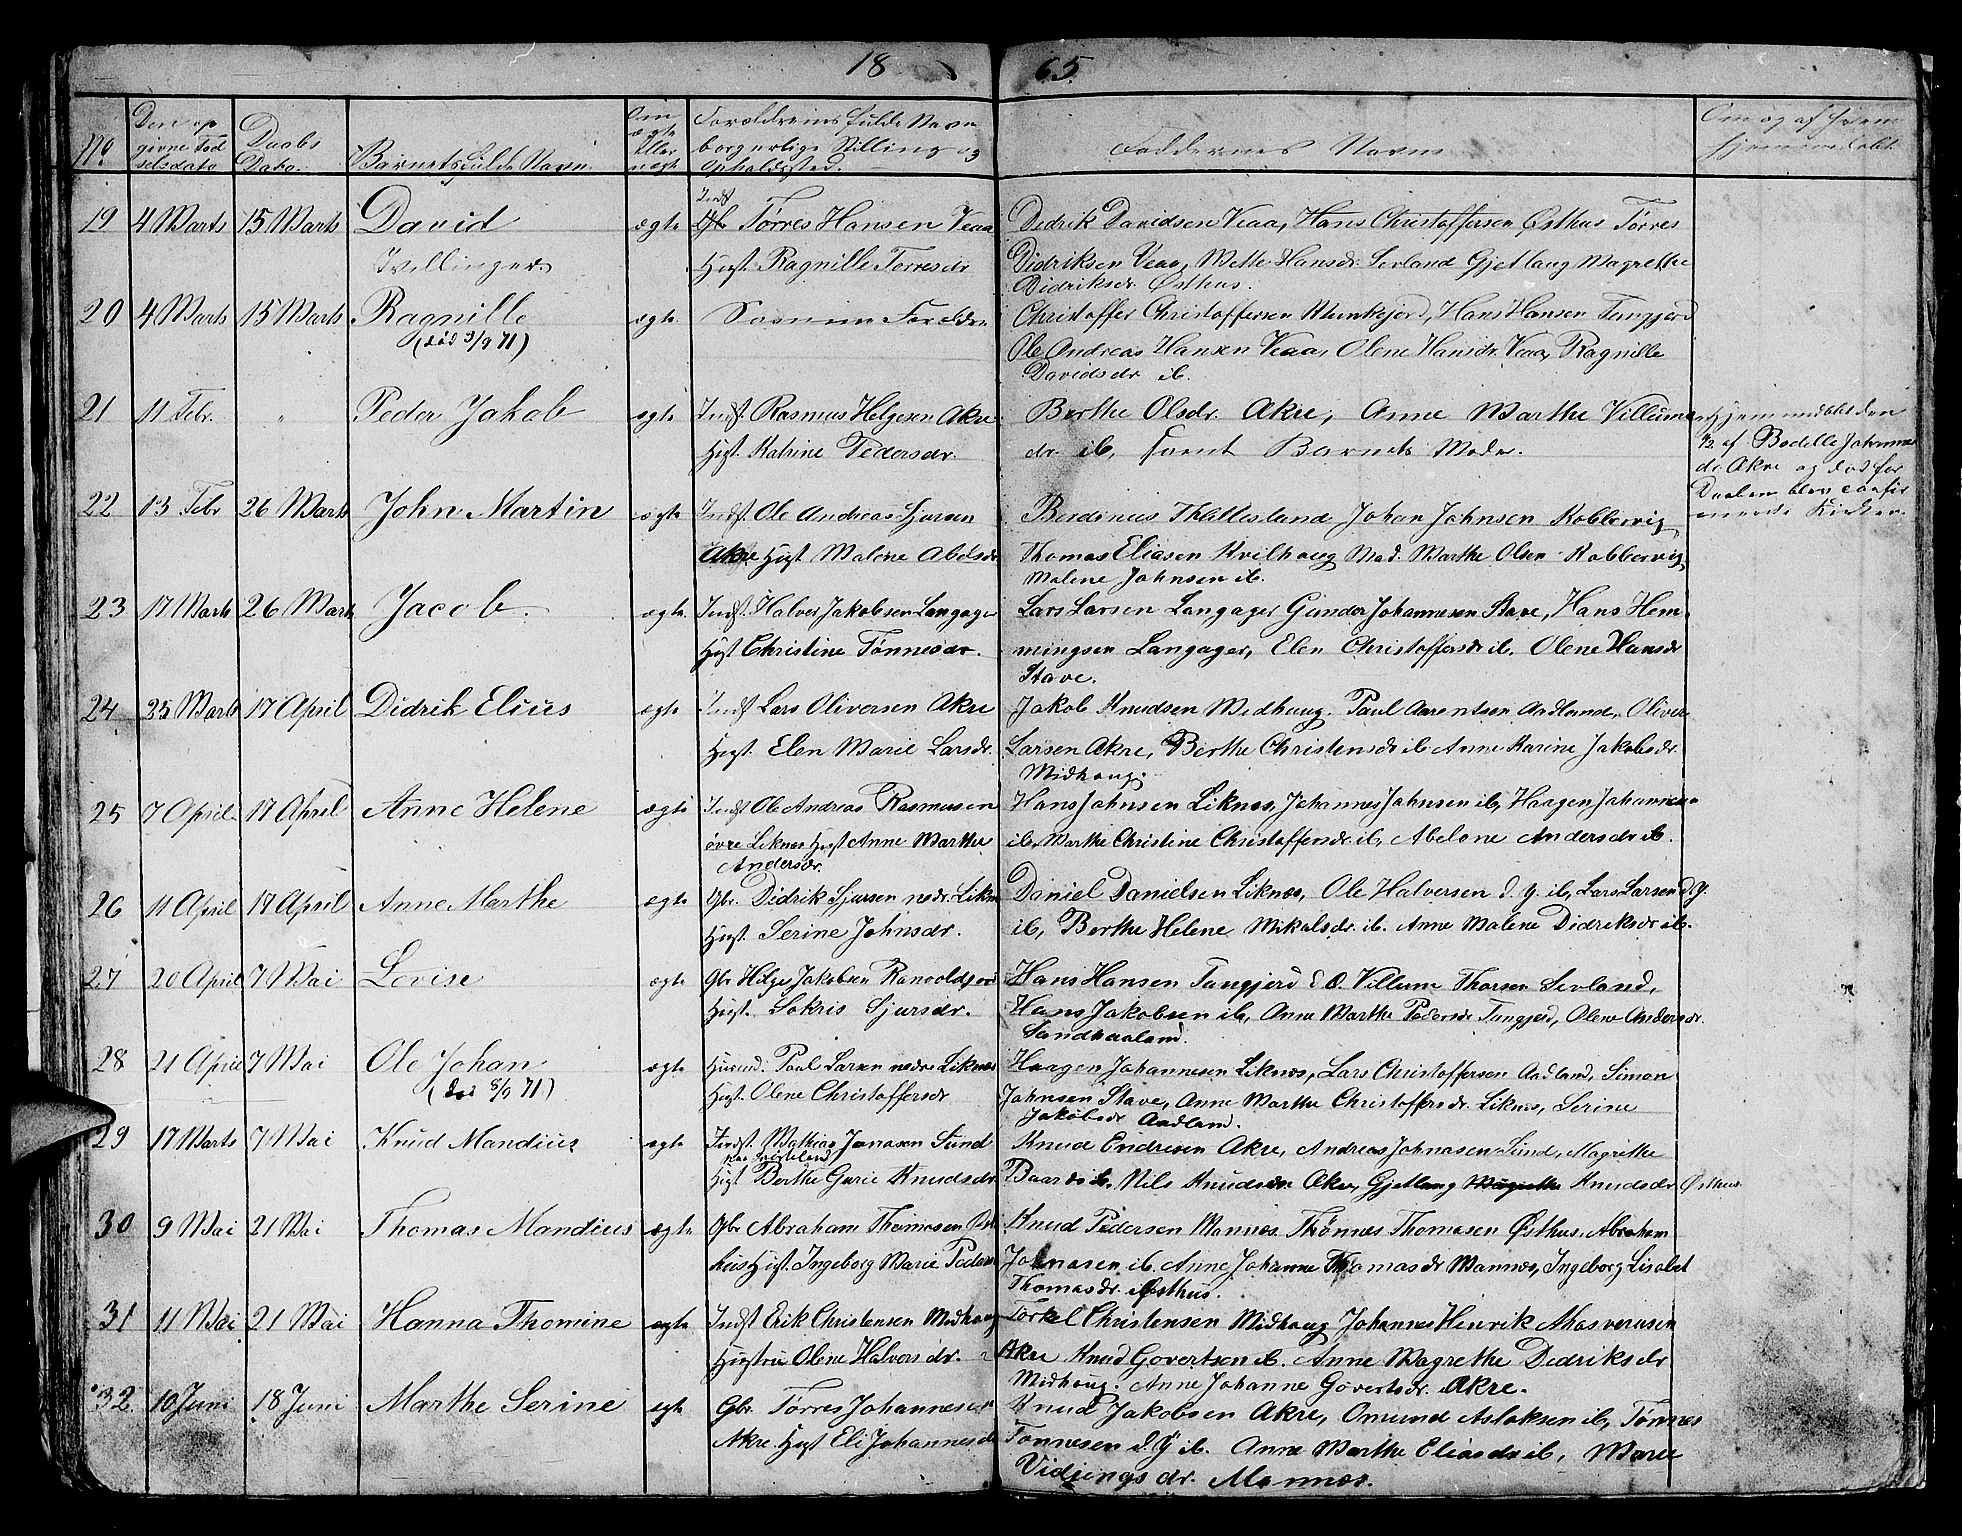 1865.
No. Den opgivne Fødselsdato Daabs Dato. Barnets fulde Navn. Om ægte eller uægte Forældrenes fulde Navn borgerlige Stilling og Opholdssted. Faddernes Navne Om og af hvem hjemmedøbt.
19 4 Marts 15 Marts David ægte Indst Gbr Tørres Hansen Veaa Didrik Davidsen Veaa, Hans Christoffersen Østhus Tørres
Tvillinger. Hust. Ragnille Torresdr Didriksen Veaa, Mette Hansdr. Sevland Gjetlaug Magrethe
Didriksdr Østhus.
20 4 Marts 15 Marts Ragnille ægte Samme Forældre Christoffer Christoffersen Munkejord, Hans Hansen Tangjerd
(død 3/9 71) Ole Andreas Hansen Veaa, Olene Hansdr. Veaa, Ragnille
Davidsdr ib.
21 11 Febr. " Peder Jakob ægte Indst. Rasmus Helgesen Akre Berthe Olsdr. Akre, Anne Marthe Villums Hjemmedøbt den
Hust. Katrine Pedersdr. dr. ib, samt Barnets Moder. af Bodelle Johannes
dr. Akre og død før
22 13 Febr 26 Marts John Martin ægte Indst. Ole Andreas Sjursen Berdinus Thallesland Johan Johnsen Kobbervig Daaben blev confir
Akre Hust Malene Abelsdr Thomas Eliasen Kvilhaug Mad. Marthe Olsen Kobbervig merede Kirken.
Malene Johnsen ib.
23 17 Marts 26 Marts Jacob. ægte Indst. Halvor Jakobsen Langager Lars Larsen Langager Gunder Johannesen Stave, Hans Hem-
Hust Christine Tønnesdr. mingsen Langager, Elen Christoffersdr ib. Olene Hansdr
Stave.
24 25 Marts 17 April Didrik Elius ægte Indst Lars Oliversen Akre Jakob Knudsen Midhaug. Paul Aarentsen Aadland, Oliver
Hust. Elen Marie Larsdr. Larsen Akre, Berthe Christensdr ib Anne Karine Jakobsdr.
Midhaug.
25 7 April 17 April Anne Helene ægte Indst Ole Andreas Rasmusen Hans Johnsen Liknes, Johannes Johnsen ib, Haagen Johannesen
øvre Liknes Hust Anne Marthe ib, Marthe Christine Christoffersdr. ib, Abelone Andersdr ib.
Andersdr.
26 11 April 17 April Anne Marthe ægte Gbr. Didrik Sjursen nedr. Likn Daniel Danielsen Liknes, Ole Halversen d. y. ib, Lars Larsen d y.
Hust. Serine Johnsdr. ib, Berthe Helene Mikalsdr. ib. Anne Malene Didriksdr ib.
27 20 April 7 Mai Lovise ægte Gbr Helge Jakobsen Ranvoldsjord Hans Hansen Tangjerd d. O. Villum Thorsen Sevland,
Hust. Sokris Sjursdr. Hans Jakobsen ib, Anne Marthe Pedersdr Tangjerd, Olene Andersdr.
Sandhaaland.
28 21 April 7 Mai Ole Johan ægte Husmd. Paul Larsen nedre Liknes Haagen Johannesen Liknes, Lars Christoffersen Aadland, Simon
(død 8/9 71) Hust. Olene Christoffersdr Johnsen Stave, Anne Marthe Christoffersdr. Liknes, Serine
Jakobsdr Aadland.
29 17 Marts 7 Mai Knud Mandius ægte Indst. Mathias Jonasen Sund Knud Endresen Akre, Andreas Johnasen Sund, Magrethe
Hust Berthe Gurie Knudsdr Baardsdr. Nils Knudsen Akre, Gjetlaug Magrethe Knudsdr Østhus.
30 9 Mai 21 Mai Thomas Mandius ægte Gbr Abraham Thomasen Øst Knud Pedersen Mannes. Thønnes Thomasen Østhus, Abraham
hus Hust. Ingeborg Marie Peders Johnasen ib. Anne Johanne Thomasdr Mannes, Ingeborg Lisabet
Thomasdr. Østhus.
31 11 Mai 21 Mai Hanna Thomine ægte Indst Erik Christensen Midhaug Torkel Christensen Midhaug Johannes Henrik Ahasverusen
Hustru Olene Halvorsdr. Akre Knud Govertsen ib. Anne Magrethe Didriksdr
Midhaug. Anne Johanne Govertsdr. Akre.
32 10 Juni 18 Juni Marthe Serine ægte Gbr. Torres Johannesen Knud Jakobsen Akre, Omund Aslaksen ib, Tønnes
Akre. Hust Eli Johannesdr Tønnesen d. y ib. Anne Marthe Eliasdr ib, Marie
Vidjingsdr. Mannes.